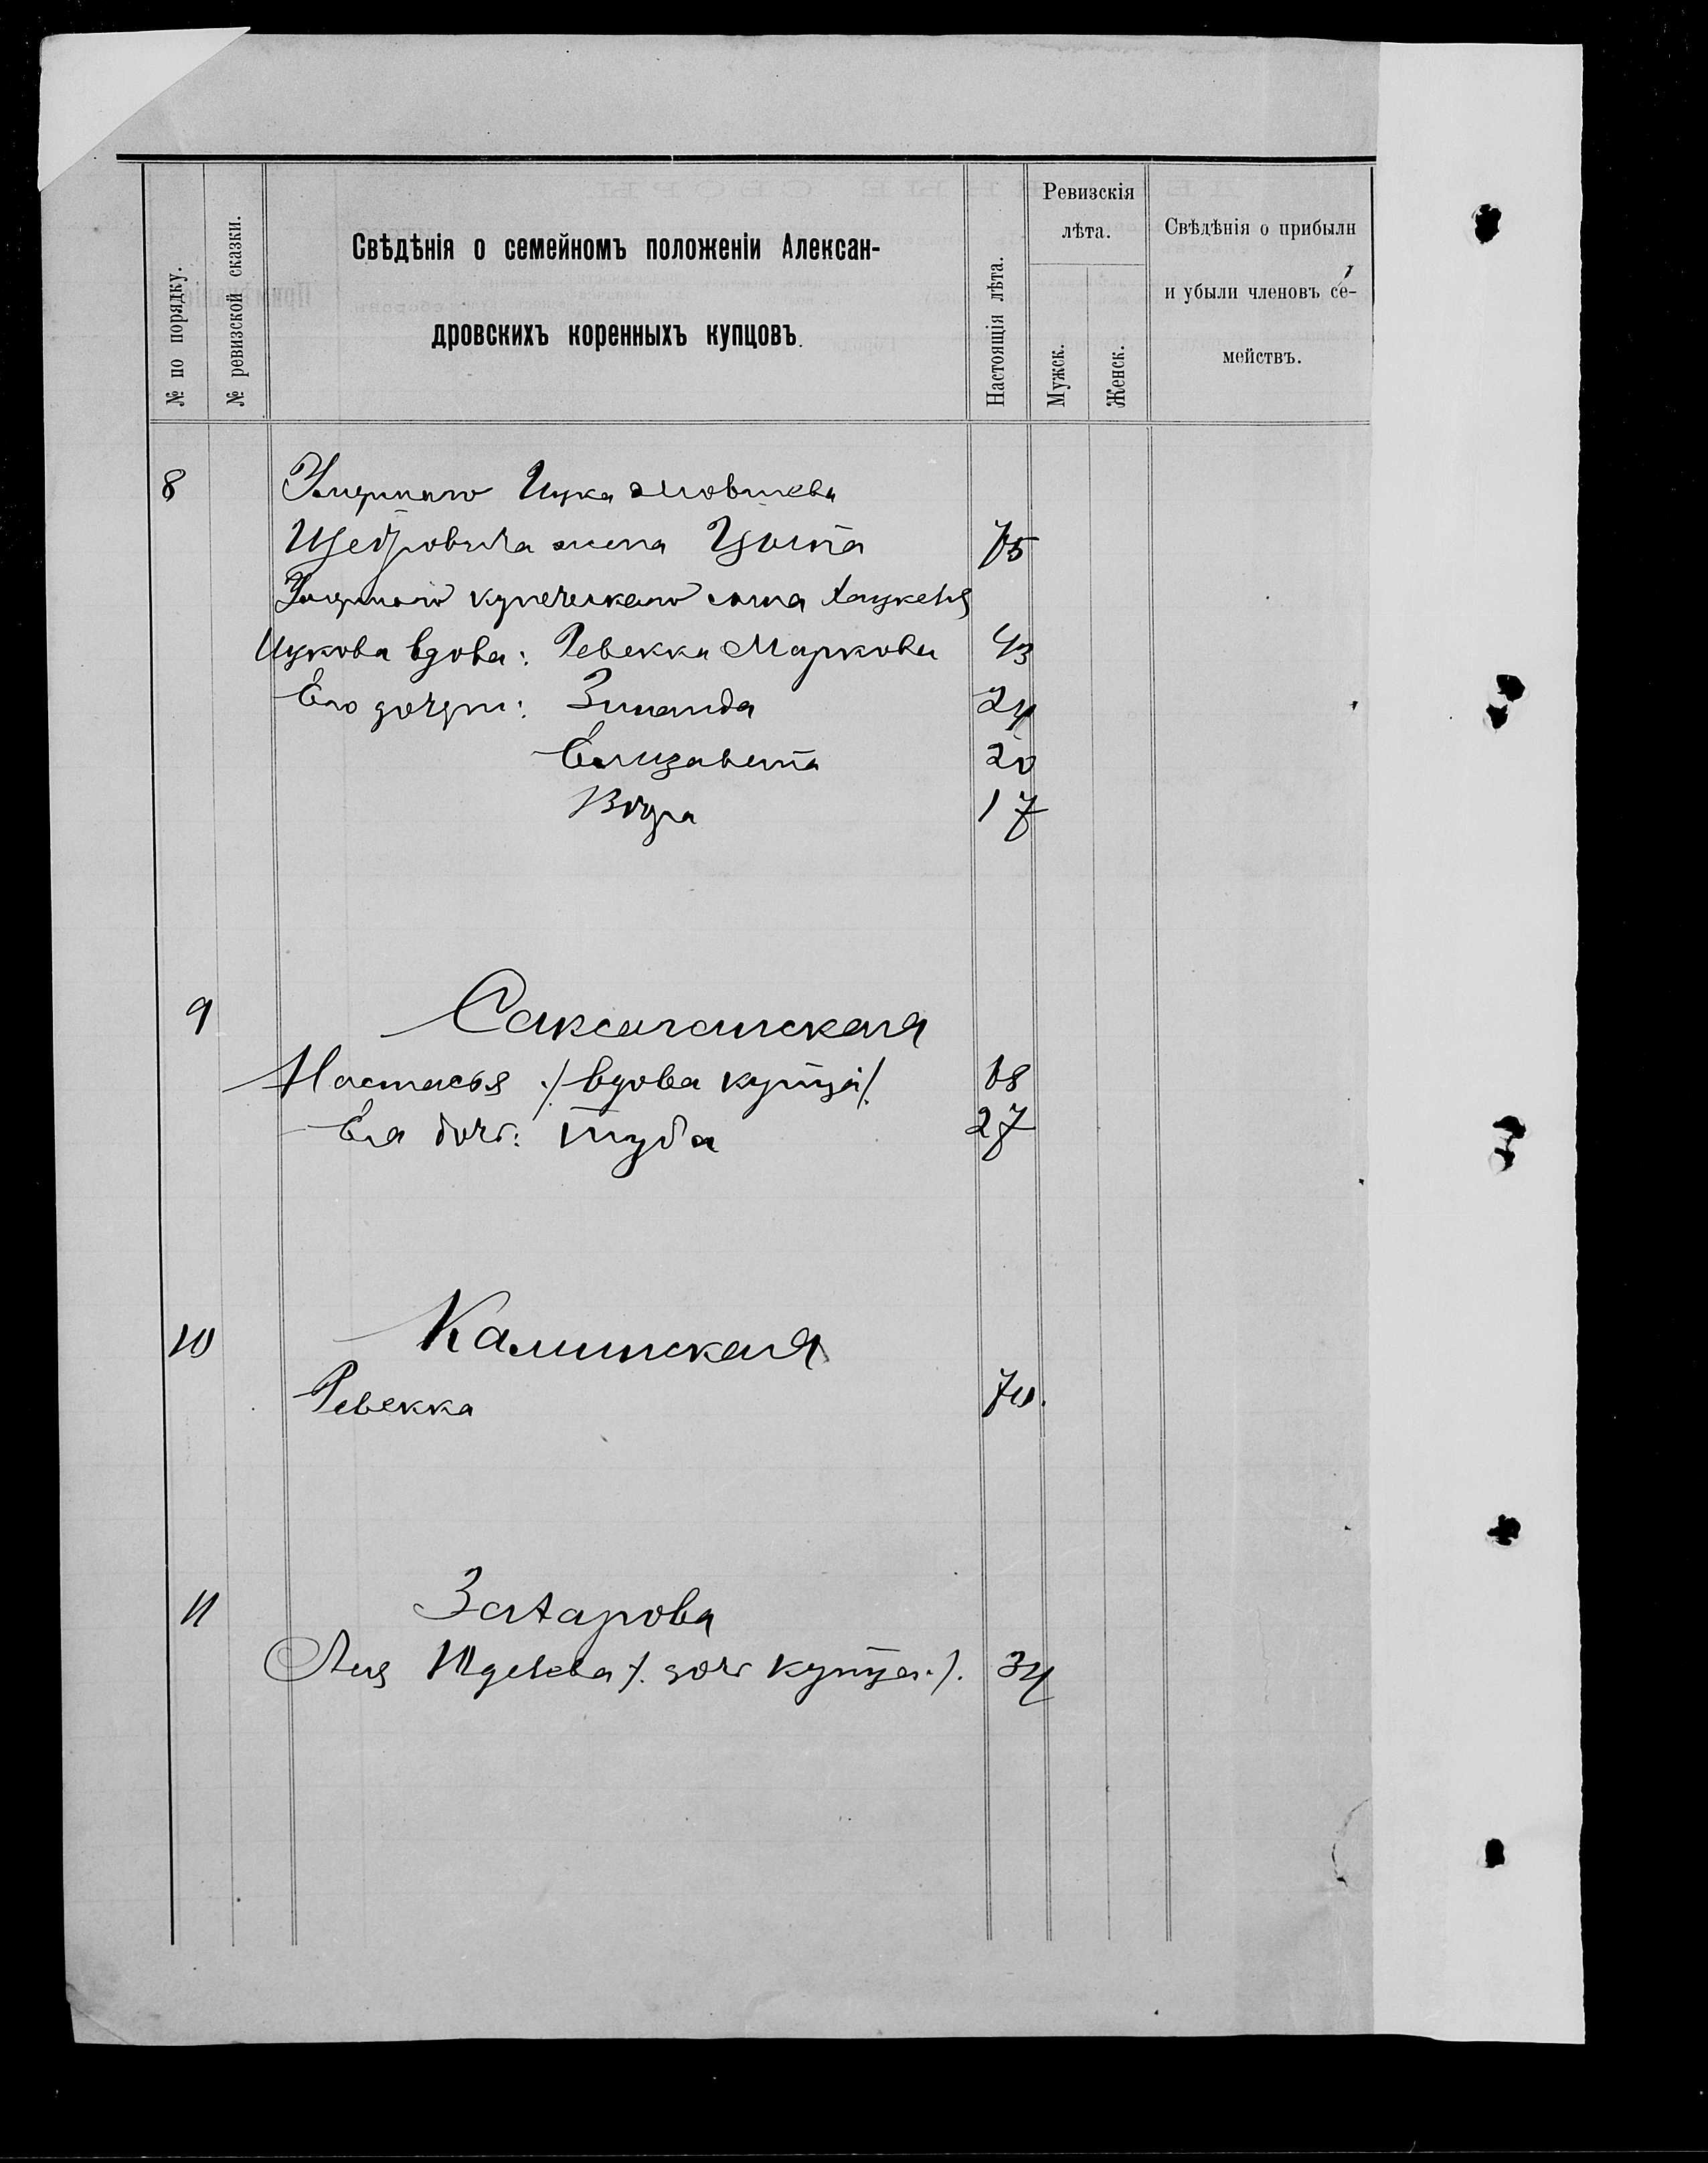 № по порядку.
№ ревизской сказки.
Свѣдѣнія о семейномъ положеніи Алексан-
дровскихъ коренныхъ купцовъ.
Настоящія лѣта.
Ревизскія
лѣта.
Мужск.
Женск.
Свѣдѣнія о прибыли
и убыли членовъ се-
мействъ.
8 Умершаго Ицка Мовшева
Щедровича жена 75
Умершаго купеческаго сына
Ицкова вдова: Ревекка Маркова 43
Его дочери: Зинаида 24
Елизавета 20
Вѣра 17
9 Саксаганская
Настасья /. вдова купца /. 68
Ея дочь: Туба 27
10 Калминская
Ревекка 70.
11 Захарова
Лея Юделева /. дочь купца ./. 34